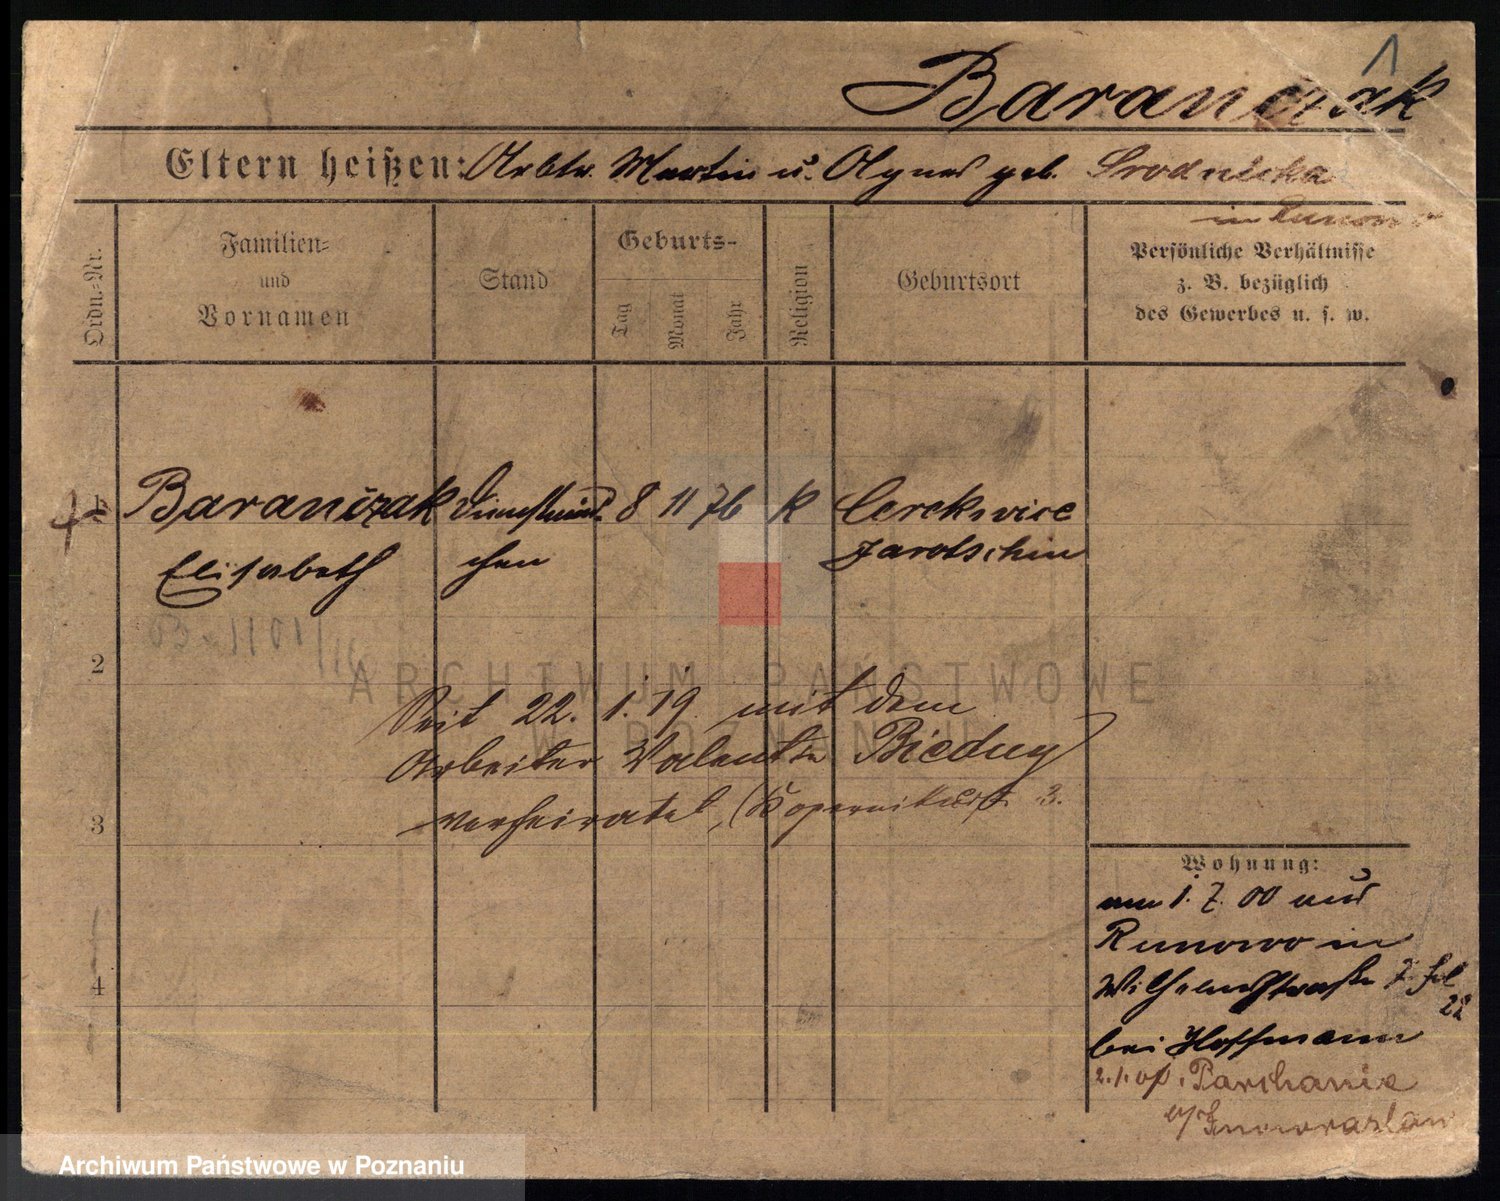 1
Barańczak
Eltern heißen: Arbtr. Martin u. Agnes geb. Srodnicka
in Runowo
Ordn.-Nr.
Familien-
und
Vornamen
Stand
Geburts-
Tag
Monat
Jahr
Religion
Geburtsort
Persönliche Verhältnisse
z. B. bezüglich
des Gewerbes u. s. w.
1 Barańczak Dienstmäd- 8 11 76 k Cerekwice
Elisabeth chen Jarotschin
2
Seit 22. 1. 19 mit dem
Arbeiter Valentin Biedny
verheiratet, (Kopernikusstr. 3.
3
Wohnung:
am 1. 7. 00 aus
Runowo in
4
Wilhelmstraße 7
22
bei Hoffmann
2.1.01. Parchanie
b/Inowrazlaw
ARCHIWUM PAŃSTWOWE
W POZNANIU
Archiwum Państwowe w Poznaniu